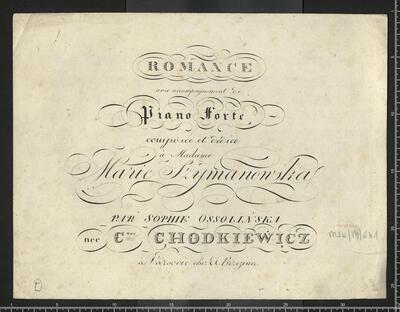 ROMANCE
avec accompagnement de
Piano Forte,
composée et dédiée
à Madame
Marie Szymanowska
PAR SOPHIE OSSOLIŃSKA
née C.sse CHODKIEWICZ
à Varsovie chez A. Brzezina
D